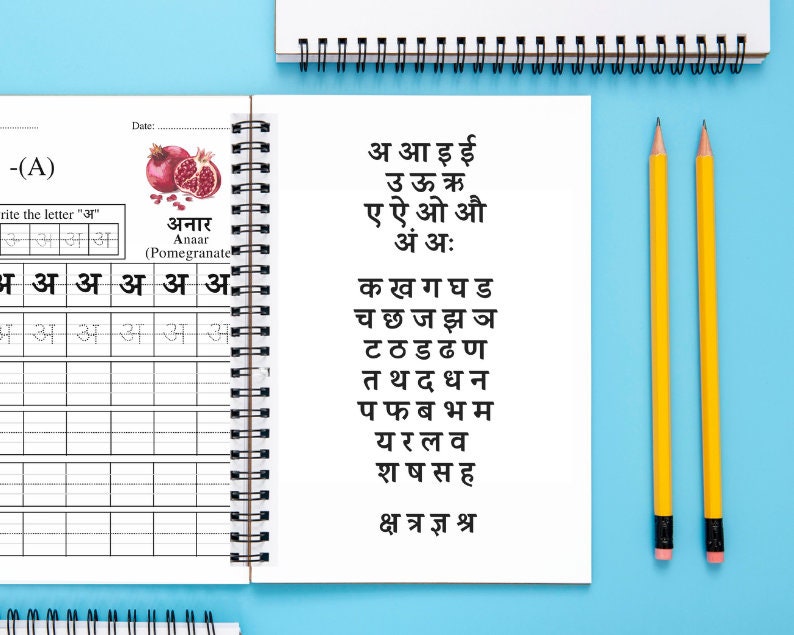 Date: ......................
-(A)
अनार
Anaar
(Pomegranate
rite the letter "अ"
अ अ अ अ अ अ
अ अ अ अ अ अ
अ आ इ ई
उ ऊ ऋ
ए ऐ ओ औ
अं अः
क ख ग घ ड
च छ ज झ ञ
ट ठ ड ढ ण
त थ द ध न
प फ ब भ म
य र ल व
श ष स ह
क्ष त्र ज्ञ श्र